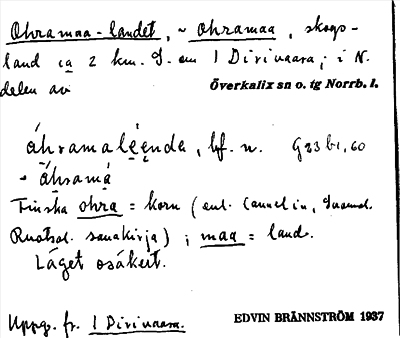 Ohramaa-landet, ~ Ohramaa, skogs-
land ca 2 km. S. om 1 Dirivaara; i N.
delen av Överkalix sn o. tg Norrb. l.
áhramaléęnda, bf. n. G23 b1, 60
~ áhramá
Finska ohra = korn (enl. Cannelin, Suomal.
Ruotsal. sanakirja); maa = land.
Läget osäkert.
Uppg. fr. 1 Dirivaara.
EDVIN BRÄNNSTRÖM 1937